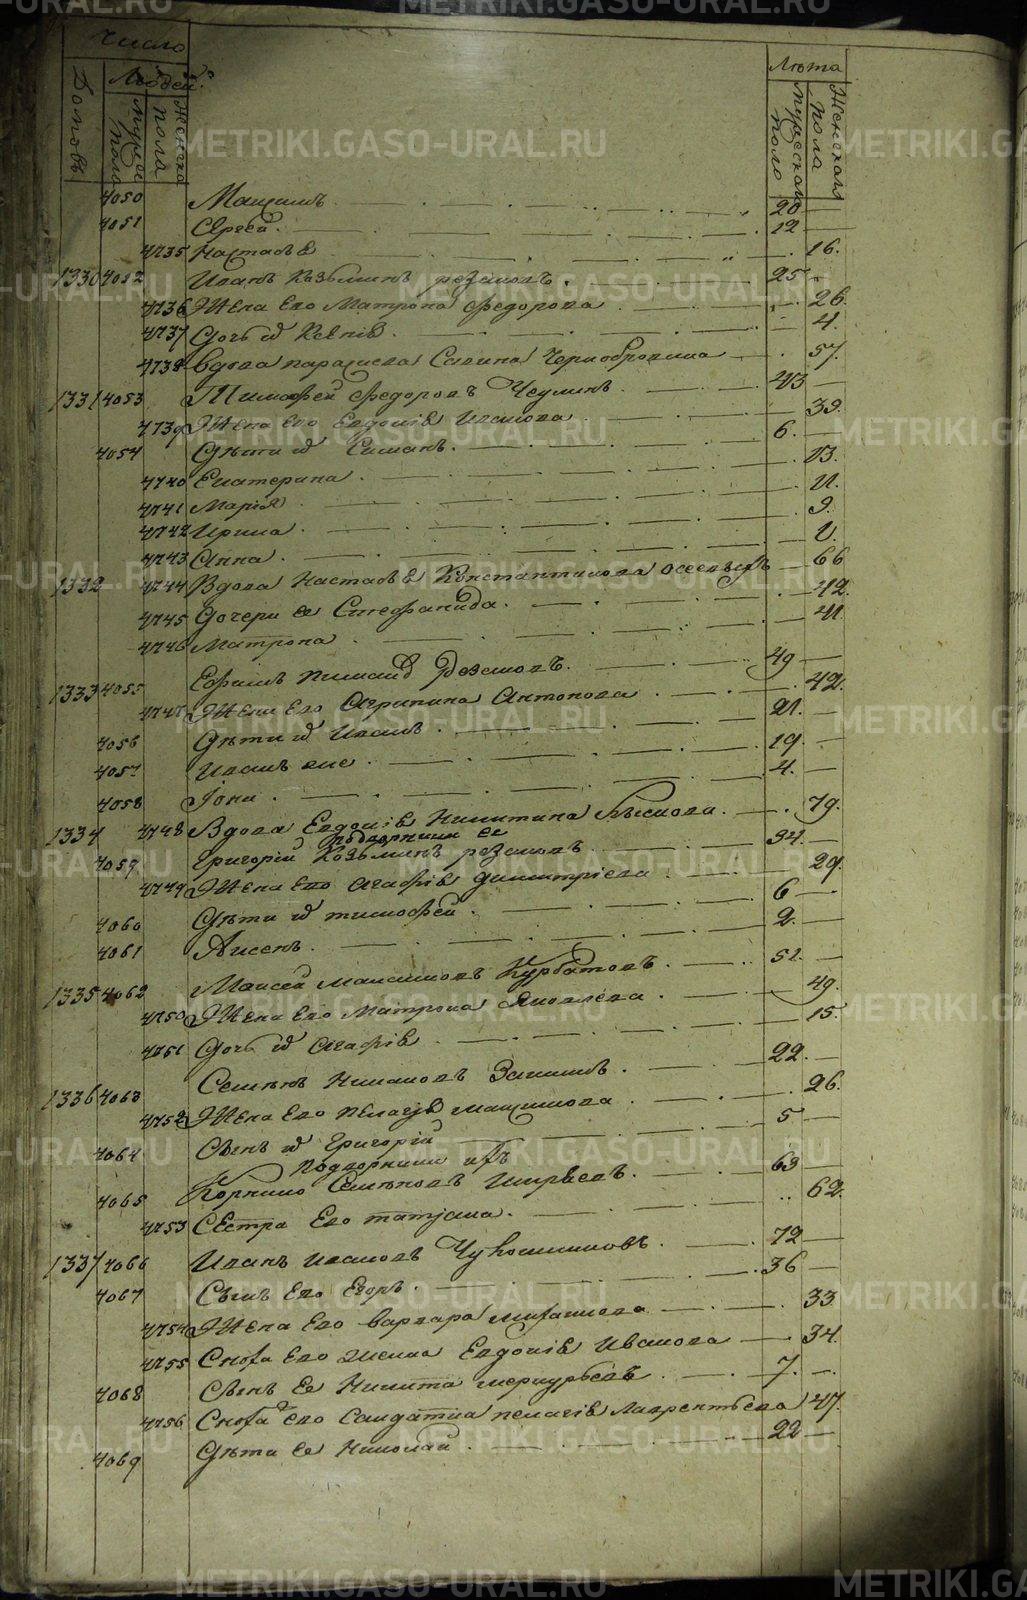 Число
Домовъ
Людей
Мужска пола
Женска пола
Лѣта
Мужескаго пола
Женскаго пола
4050 Мащимъ 20
4051 Сергѣй 12
4735 Настасья 16.
1330 4052 Иванъ Козьминъ резановъ 25
4736 Жена Его Матрона федорова 26
4737 Дочь 4.
4738 вдова параскева Савина Чернобровина 57
1331 4053 Тимофей Федоровъ Чеулинъ 43
4739 Жена Его Евдокія Иванова 39.
4054 Дѣти Симанъ 6.
4740 Екатерина 13.
4741 Марія 11.
4742 Ирина 9.
4743 Анна
1332 4744 Вдова Настасья Константинова 66
4745 Дочери Ее Стефанида 42.
4746 Матрона 41
1333 4055 Ефимъ резановъ 49
4747 Жена Его Агрипина Антонова 42.
4056 Дѣти Иванъ 21.
4057 Иванъ же 19.
4058 Іона 4.
1334 4748 Вдова Евдокія Никитина 79.
подворники Ее
4059 Григорій Козьминъ резановъ 34.
4749 Жена Его Агафія Димитріева 29.
4060 Дѣти тимофей 6
4061 2.
1335 4062 Моисей Максимовъ Курбатовъ 51.
4750 Жена Его Матрона Яковлева 49.
4751 Дочь Агафія 15.
1336 4063 Семенъ 22.
4752 Жена Его Пелагѣя мащимова 26.
4064 Сынъ Григорій 5
Подворники ихъ
4065 Корнило Семеновъ 63
4753 Сестра Его татіана 62.
1337 4066 Иванъ Ивановъ 72
4067 Сынъ Его Егоръ 36
4754 Жена Его варвара 33.
4755 Сноха Его Евдокія Иванова 34.
4068 Сынъ Ее Никита меркурьевъ 7.
4756 Сноха Его Салдатка пелагія Лаврентьева 47.
4069 Дѣти Ее Николай 22
METRIKI.GASO-URAL.RU